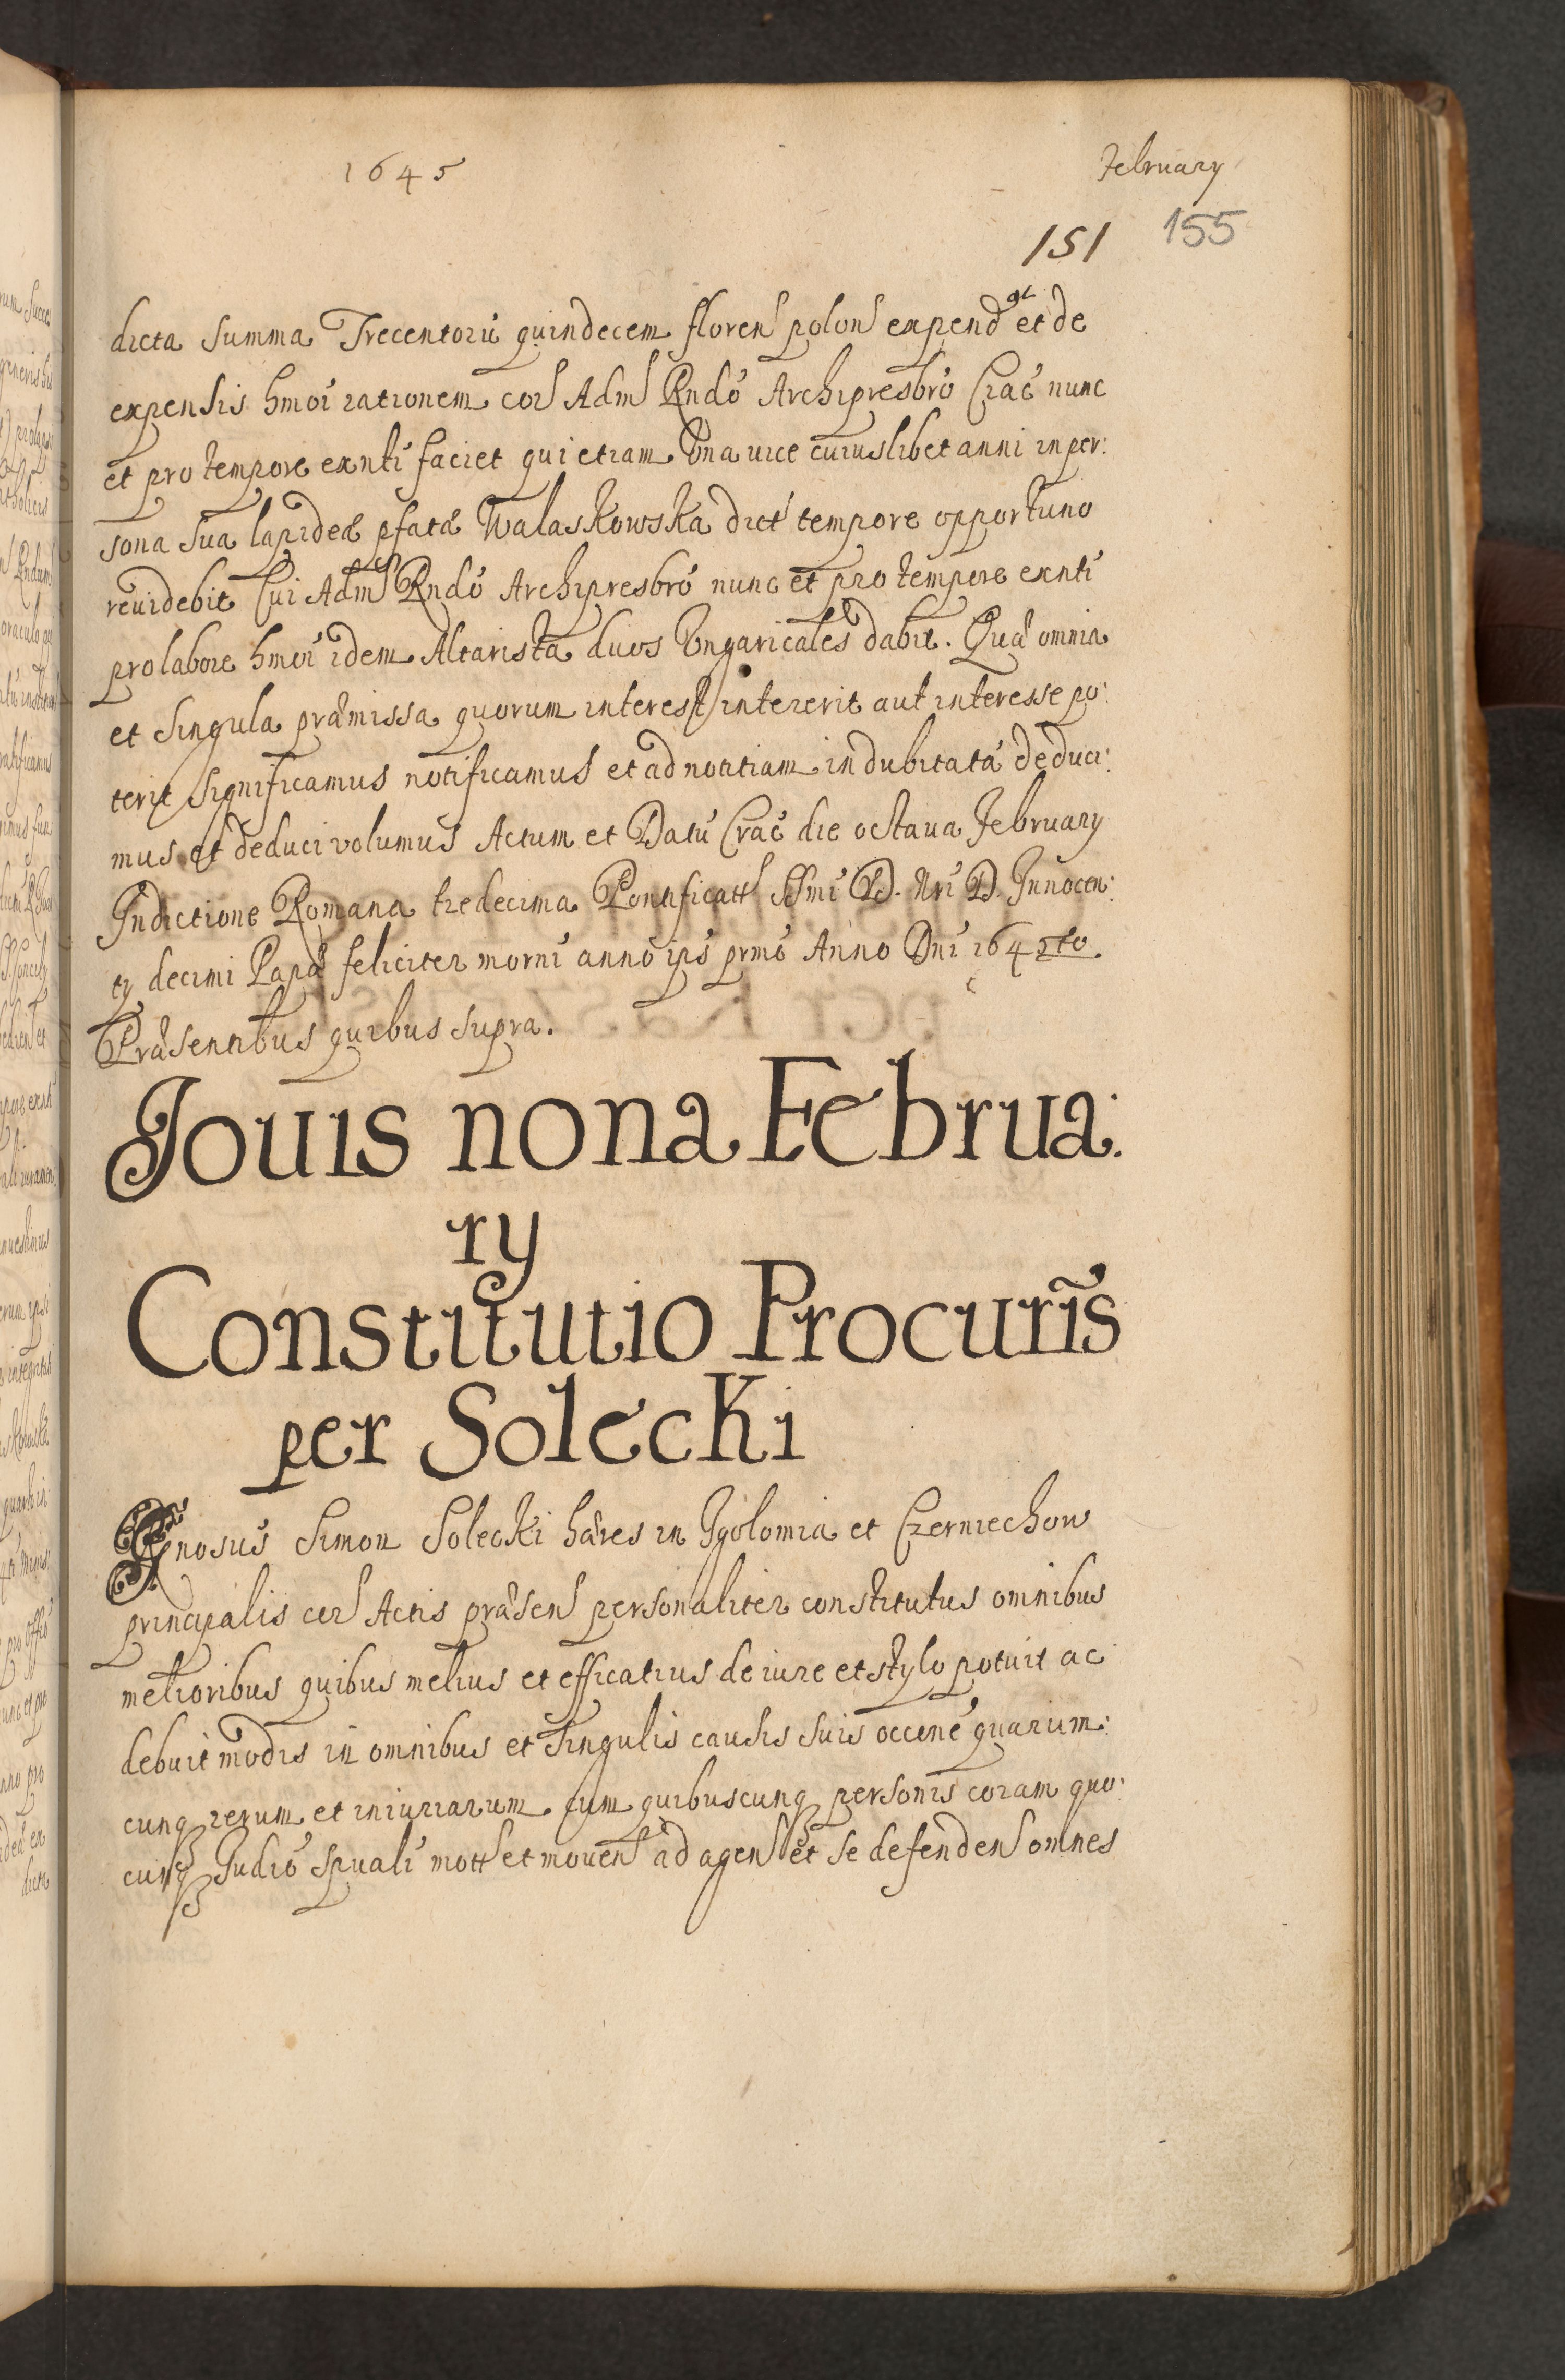 1645
February
151 155
dicta summa Trecentorū quindecem floren polon expend ac et de
expensis hmōi rationem cor Adm Rndō Archipresbrō Crac̄ nunc
et pro tempore exnti faciet qui etiam Vna uice cuiuslibet anni in per:
sona sua lapideā pfatā Walaskowska dict tempore opportuno
reuidebit Cui Adm Rndō Archipresbrō nunc et pro tempore exnti
pro labore hmōi idem Altarista duos Vngaricales dabit. Quæ omnia
et singula præmissa quorum interest intererit aut interesse po:
terit significamus notificamus et ad notitiam indubitatā deduci:
mus et deduci volumus Actum et Datū Crac̄ die octaua February
Indictione Romana tredecima Pontificatt SSmi D. Nri D. Innocen:
ty decimi Papæ feliciter morni anno ips prmō Anno Dni 1645to
Præsentibus quibus supra.
Jouis nona Februa:
ry
Constitutio Procuris̃
per Solecki
Gnosus Simon Solecki hæres in Jgolomia et Czerniechow
principalis cor Actis præsen personaliter constitutus omnibus
melioribus quibus melius et efficatius de iure et stylo potuit ac
debuit modis in omnibus et singulis causis suis occōne quarum:
cunq rerum et iniuriarum cum quibuscunq personis coram quo:
cunq Judiō spuali mott et mouen ad agen et se defenden omnes